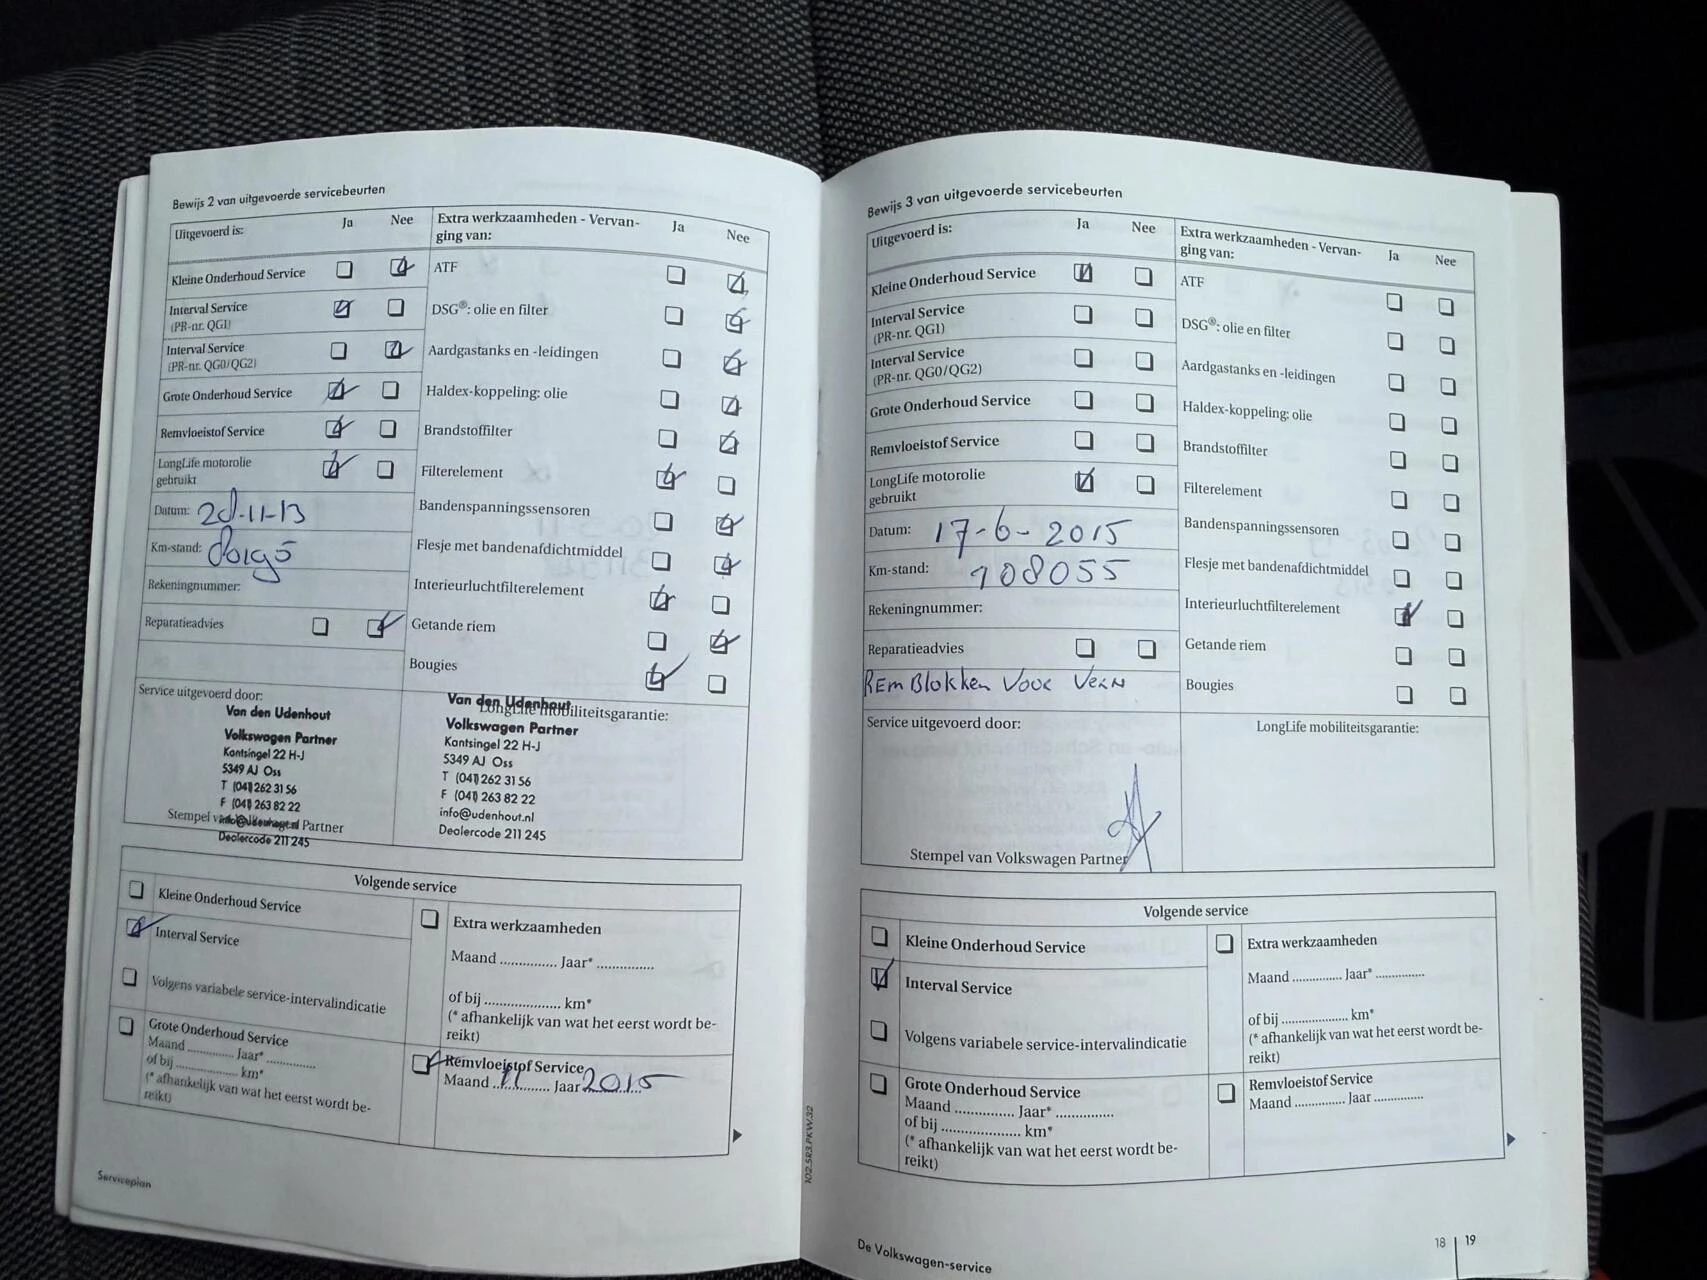 Bewijs 2 van uitgevoerde servicebeurten
Uitgevoerd is: Ja Nee
Kleine Onderhoud Service
Interval Service
(PR-nr. QG1)
Interval Service
(PR-nr. QG0/QG2)
Grote Onderhoud Service
Remvloeistof Service
LongLife motorolie
gebruikt
Datum: 28-11-13
Km-stand:
Rekeningnummer:
Reparatieadvies
Extra werkzaamheden - Vervan-
ging van: Ja Nee
ATF
DSG®: olie en filter
Aardgastanks en -leidingen
Haldex-koppeling: olie
Brandstoffilter
Filterelement
Bandenspanningssensoren
Flesje met bandenafdichtmiddel
Interieurluchtfilterelement
Getande riem
Bougies
Service uitgevoerd door:
Van den Udenhout
Volkswagen Partner
Kantsingel 22 H-J
5349 AJ Oss
T (041) 262 31 56
F (041) 263 82 22
info@udenhout.nl
Stempel van Volkswagen Partner
Dealercode 211 245
LongLife mobiliteitsgarantie:
Van den Udenhout
Volkswagen Partner
Kantsingel 22 H-J
5349 AJ Oss
T (041) 262 31 56
F (041) 263 82 22
info@udenhout.nl
Dealercode 211 245
Volgende service
Kleine Onderhoud Service
Interval Service
Volgens variabele service-intervalindicatie
Grote Onderhoud Service
Maand .............. Jaar* ..............
of bij .................... km*
(* afhankelijk van wat het eerst wordt be-
reikt)
Extra werkzaamheden
Maand .............. Jaar* ..............
of bij .................... km*
(* afhankelijk van wat het eerst wordt be-
reikt)
Remvloeistof Service
Maand 11 Jaar 2015
Serviceplan
102.5R3.PKW.32
Bewijs 3 van uitgevoerde servicebeurten
Uitgevoerd is: Ja Nee
Kleine Onderhoud Service
Interval Service
(PR-nr. QG1)
Interval Service
(PR-nr. QG0/QG2)
Grote Onderhoud Service
Remvloeistof Service
LongLife motorolie
gebruikt
Datum: 17-6-2015
Km-stand: 108055
Rekeningnummer:
Reparatieadvies
REM BloKKen Voor Vern
Extra werkzaamheden - Vervan-
ging van: Ja Nee
ATF
DSG®: olie en filter
Aardgastanks en -leidingen
Haldex-koppeling: olie
Brandstoffilter
Filterelement
Bandenspanningssensoren
Flesje met bandenafdichtmiddel
Interieurluchtfilterelement
Getande riem
Bougies
Service uitgevoerd door:
Stempel van Volkswagen Partner
LongLife mobiliteitsgarantie:
Volgende service
Kleine Onderhoud Service
Interval Service
Volgens variabele service-intervalindicatie
Grote Onderhoud Service
Maand .............. Jaar* ..............
of bij .................... km*
(* afhankelijk van wat het eerst wordt be-
reikt)
Extra werkzaamheden
Maand .............. Jaar* ..............
of bij .................... km*
(* afhankelijk van wat het eerst wordt be-
reikt)
Remvloeistof Service
Maand .............. Jaar ..............
De Volkswagen-service
18 | 19